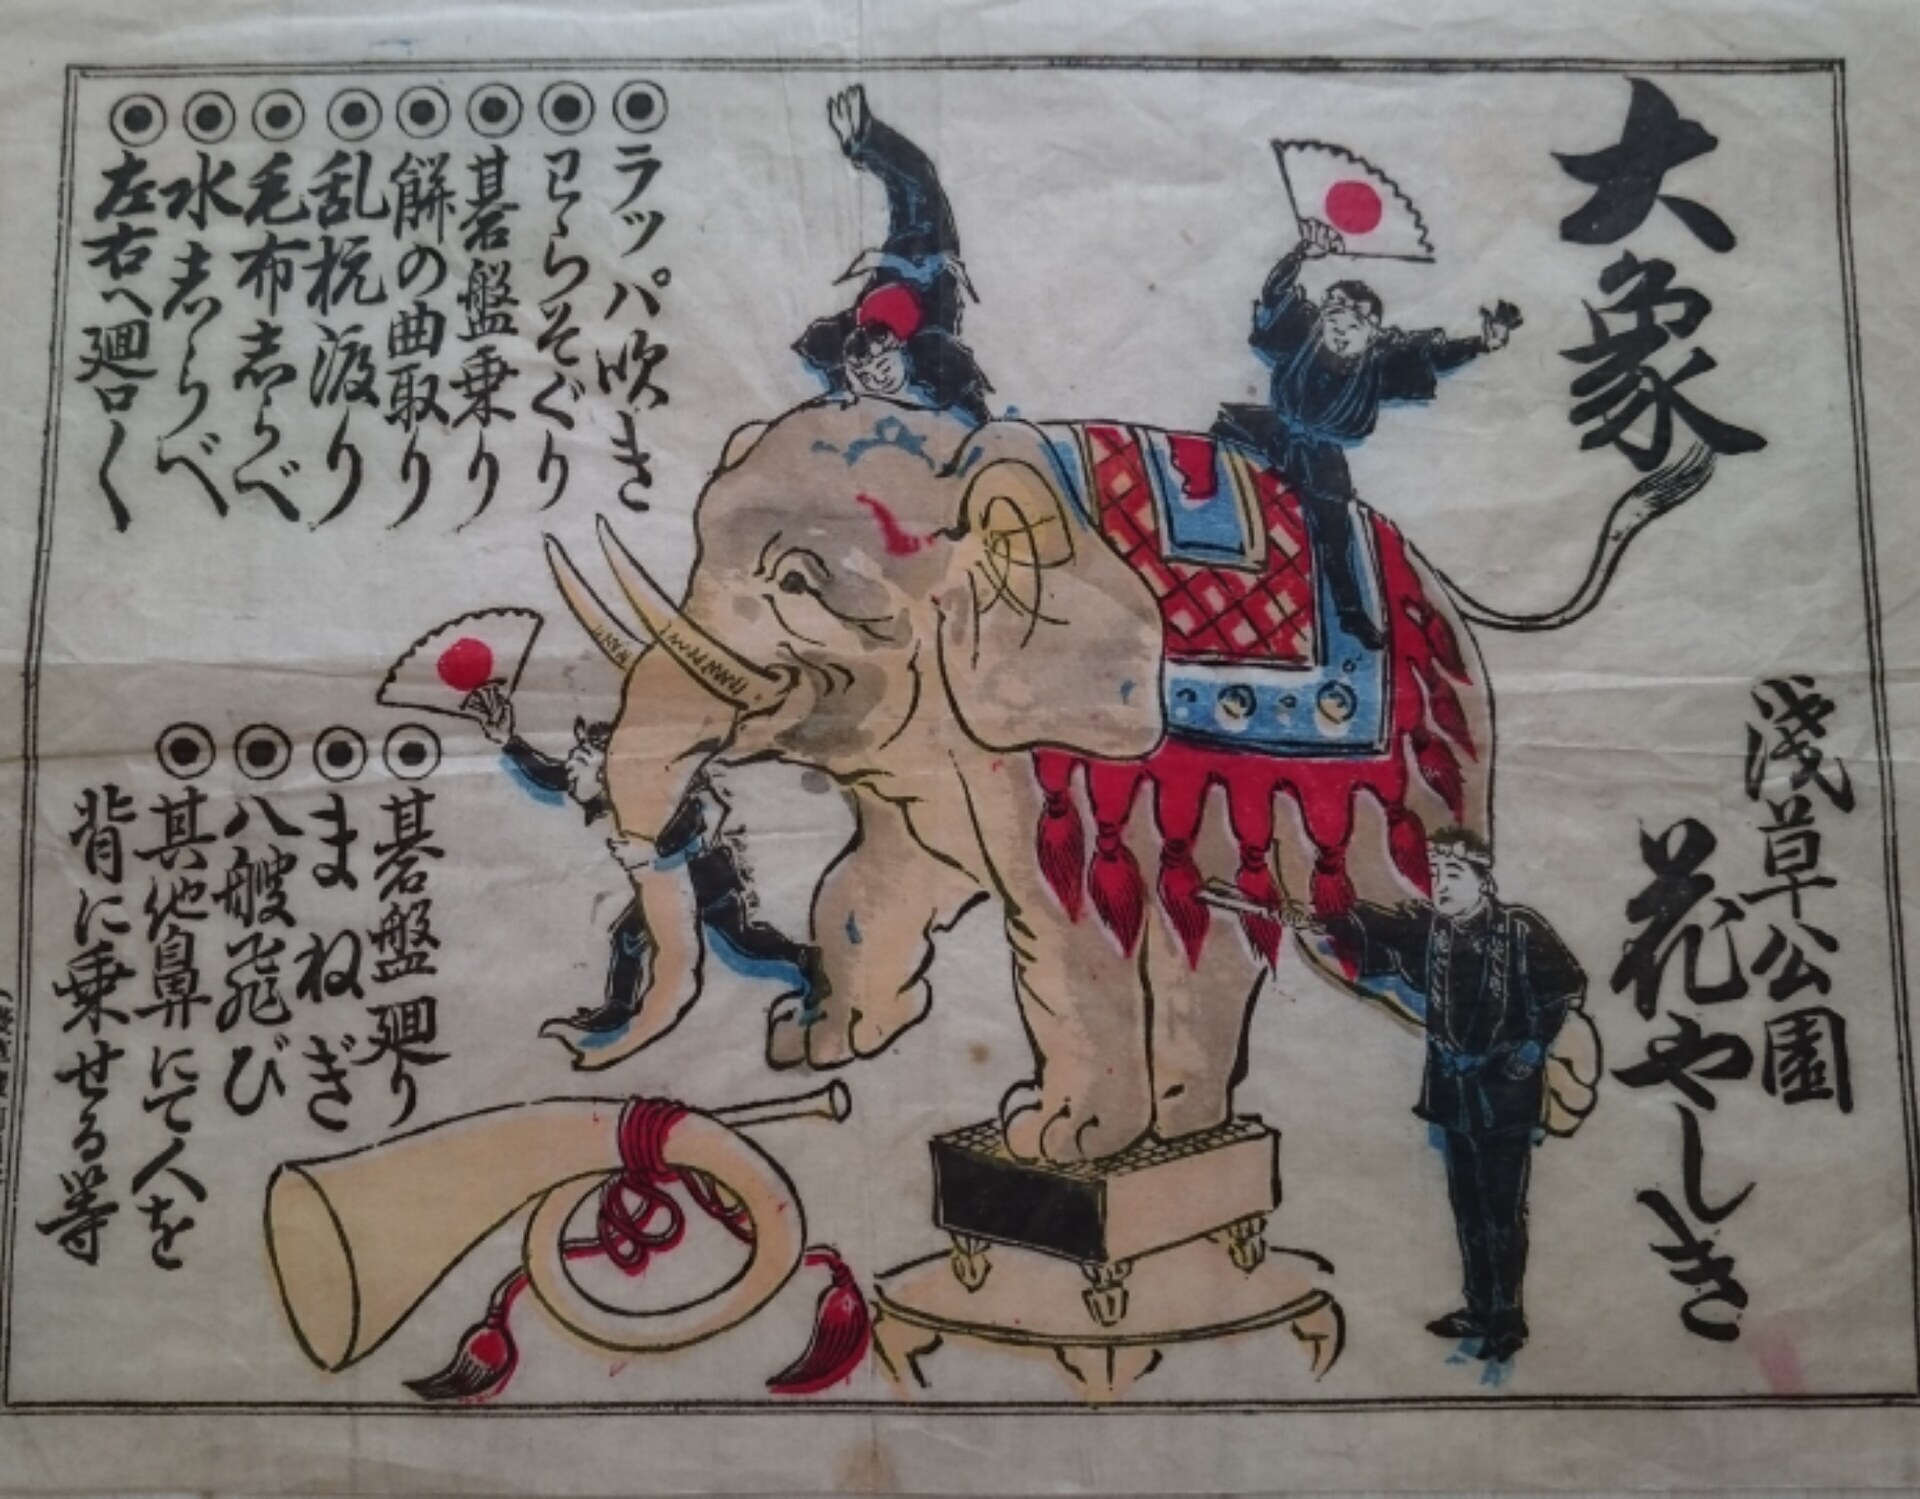 大象
浅草公園
花やしき
ラッパ吹き
碁盤乗り
餅の曲取り
乱杭渡り
毛布志らべ
水志らべ
左右へ廻ロ〱
碁盤廻り
まねぎ
八艘飛び
其他鼻にて人を
背に乗せる等